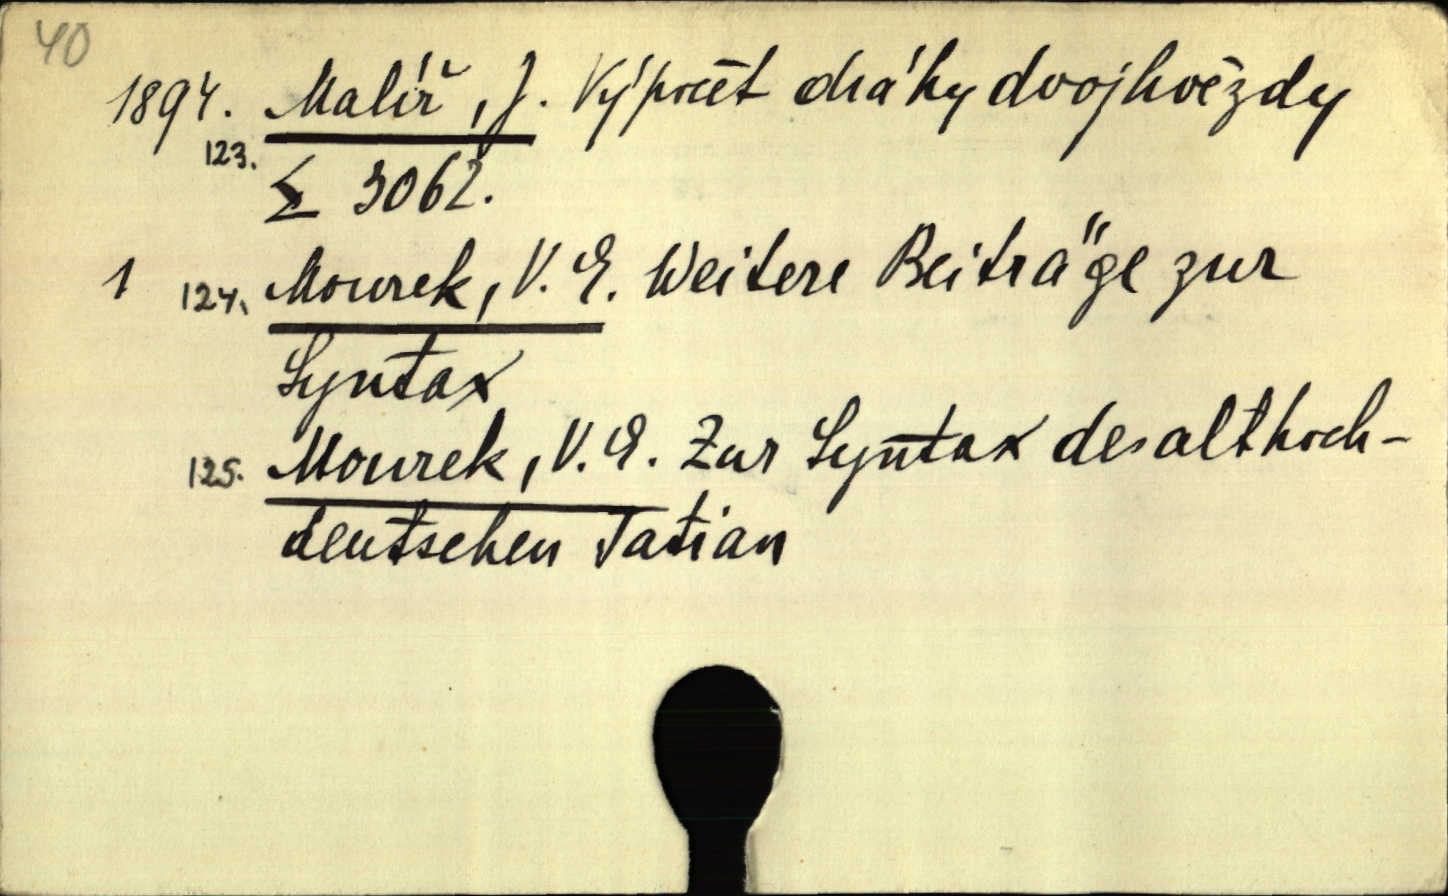 40
1894. Malíř, J. Výpočet dráhy dvojhvězdy
123.
Σ 3062.
1 124. Mourek, V. E. Weitere Beiträge zur
Syntax
125. Mourek, V. E. Zur Syntax des althoch-
deutschen Tatian